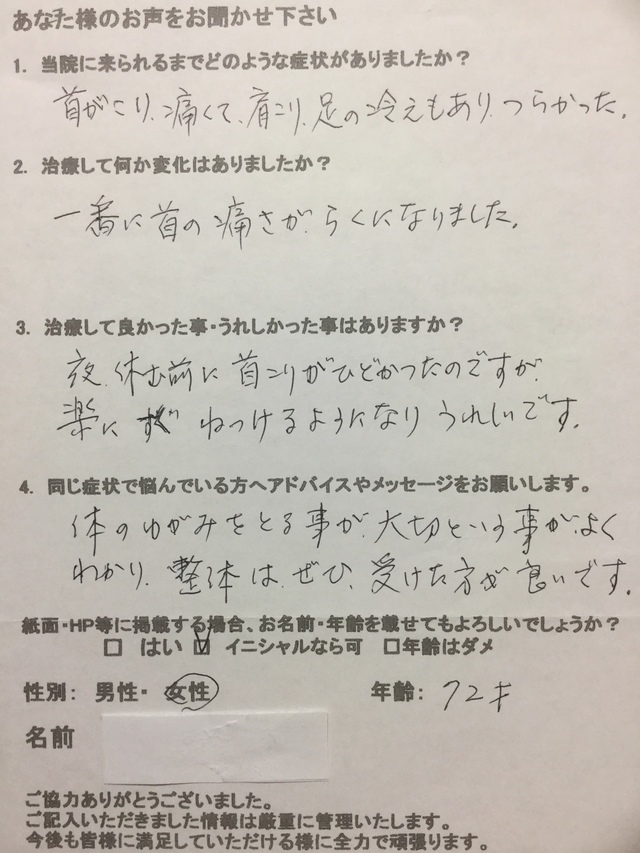 あなた様のお声をお聞かせ下さい
1. 当院に来られるまでどのような症状がありましたか？
首がこり、痛くて、肩こり、足の冷えもあり、つらかった。
2. 治療して何か変化はありましたか？
一番に首の痛さが、らくになりました。
3. 治療して良かった事・うれしかった事はありますか？
夜、休む前に首こりがひどかったのですが、
楽にすぐねつけるようになりうれしいです。
4. 同じ症状で悩んでいる方へアドバイスやメッセージをお願いします。
体のゆがみをとる事が、大切という事が、よく
わかり、整体は、ぜひ、受けた方が良いです。
紙面・HP等に掲載する場合、お名前・年齢を載せてもよろしいでしょうか？
□ はい ☑ イニシャルなら可 □年齢はダメ
性別： 男性・ 女性 年齢： 72才
名前
ご協力ありがとうございました。
ご記入いただきました情報は厳重に管理いたします。
今後も皆様に満足していただける様に全力で頑張ります。